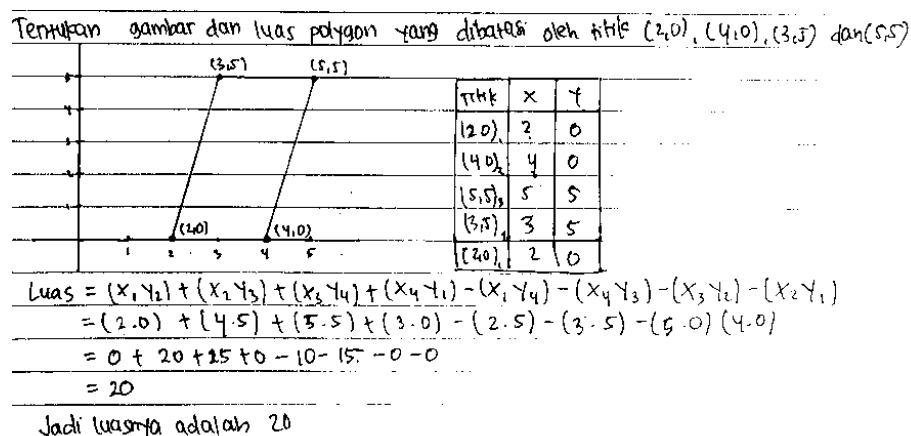 Tentukan gambar dan luas polygon yang dibatasi oleh titik (2,0), (4,0), (3,5) dan (5,5)
(3,5) (5,5)
5
4
3
2
1
(2,0) (4,0)
1 2 3 4 5
Titik X Y
(2,0)₁ 2 0
(4,0)₂ 4 0
(5,5)₃ 5 5
(3,5)₄ 3 5
(2,0)₁ 2 0
Luas = (X₁Y₂) + (X₂Y₃) + (X₃Y₄) + (X₄Y₁) - (X₁Y₄) - (X₄Y₃) - (X₃Y₂) - (X₂Y₁)
= (2.0) + (4.5) + (5.5) + (3.0) - (2.5) - (3.5) - (5.0) (4.0)
= 0 + 20 + 25 + 0 - 10 - 15 - 0 - 0
= 20
Jadi luasnya adalah 20